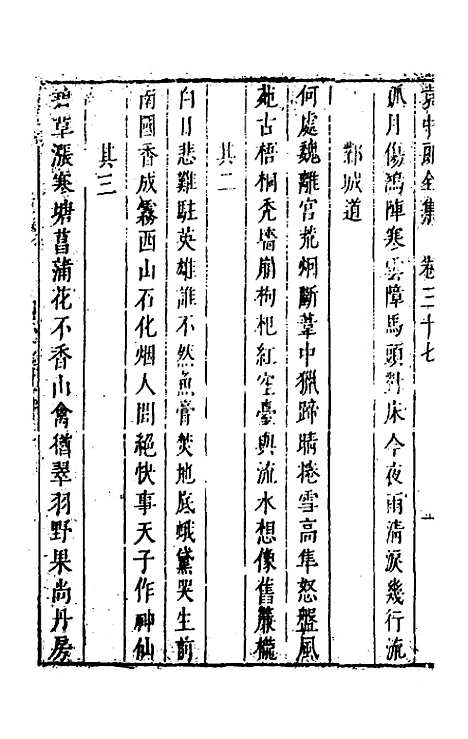 袁中郎全集　卷三十七
孤月傷鴻陣寒雲障馬頭對床今夜雨清淚幾行流
鄴城道
何處魏離宮荒烟斷葦中獵蹄晴捲雪高隼怒盤風
苑古梧桐禿墻崩枸杞紅空臺與流水想像舊簾櫳
其二
白日悲難駐英雄誰不然魚膏焚地底蛾黛哭生前
南國香成霧西山石化烟人間絕快事天子作神仙
其三
碧草漲寒塘菖蒲花不香山禽猶翠羽野果尚丹房